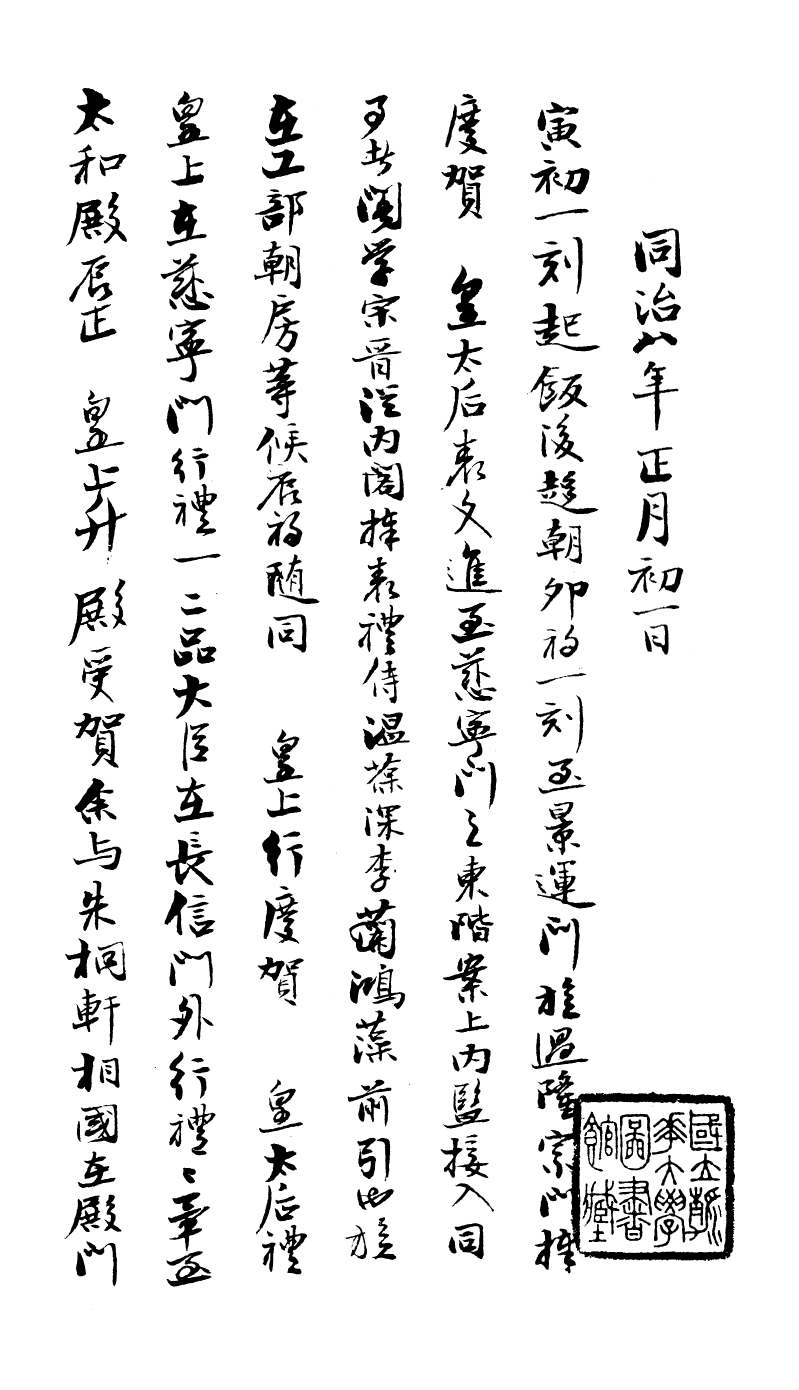 同治八年正月初一日
寅初一刻起飯後趨朝卯初一刻至景運門旋過隆宗門捧
慶賀 皇太后表文進至慈寧門之東階案上內監接入同
事者閣學宗晉從內閣捧表禮侍溫葆深李蘭鴻藻前引也旋
在工部朝房等候辰初隨同 皇上行慶賀 皇太后禮
皇上在慈寧門行禮一二品大臣在長信門外行禮禮畢至
太和殿辰正 皇上升殿受賀余與朱桐軒相國在殿門
國立清華大學圖書館藏